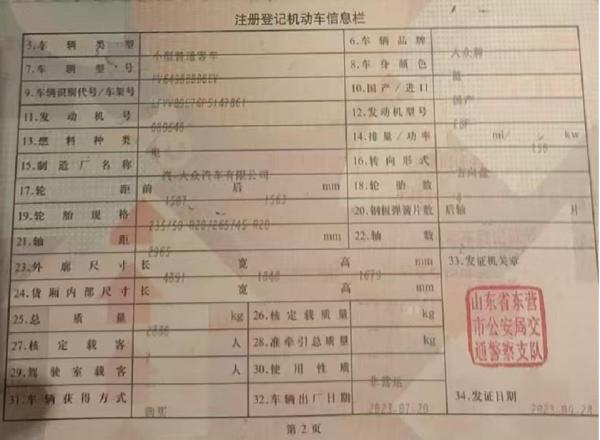 注册登记机动车信息栏
5.车辆类型 小型普通客车 6.车辆品牌 大众牌
7.车辆型号 8.车身颜色 蓝
9.车辆识别代号/车架号 10.国产/进口 国产
11.发动机号 12.发动机型号 EBF
13.燃料种类 电 14.排量/功率 ml/ 150 kw
15.制造厂名称 汽-大众汽车有限公司 16.转向形式 方向盘
17.轮距 前 1587 后 1563 mm 18.轮胎数
19.轮胎规格 235/50 R20/265/45 R20 20.钢板弹簧片数 后轴 片
21.轴距 2965 mm 22.轴数
23.外廓尺寸 长 4891 宽 1848 高 1679 mm 33.发证机关章
24.货厢内部尺寸 长 宽 高 mm
山东省东营
市公安局交
通警察支队
25.总质量 kg 26.核定载质量 kg
27.核定载客 人 28.准牵引总质量 kg
29.驾驶室载客 人 30.使用性质 非营运
31.车辆获得方式 购买 32.车辆出厂日期 2023-07-20 34.发证日期 2023-09-20
第2页